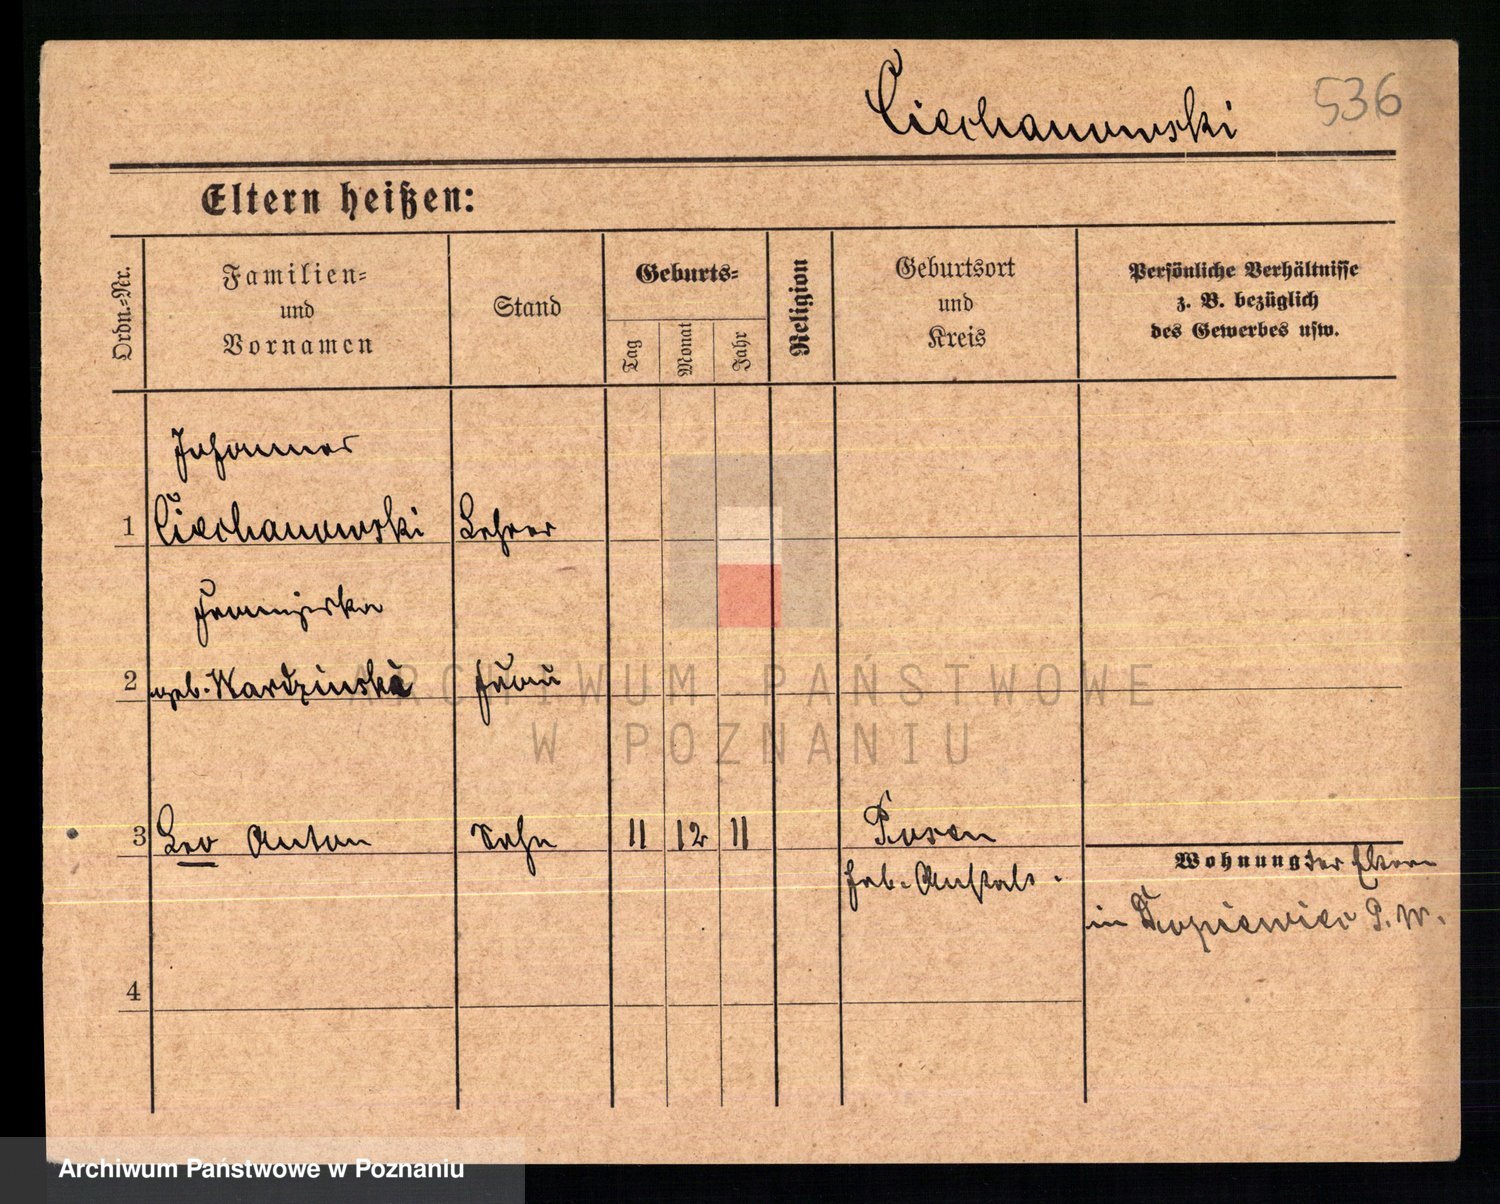 Ciechanowski
536
Eltern heißen:
Ordn.=Nr.
Familien=
und
Vornamen
Stand
Geburts=
Tag
Monat
Jahr
Religion
Geburtsort
und
Kreis
Persönliche Verhältnisse
z. B. bezüglich
des Gewerbes usw.
Johannes
1 Ciechanowski Lehrer
Franziska
2 geb. Nardzinski Frau
ARCHIWUM PAŃSTWOWE
W POZNANIU
3 Leo Anton Sohn 11 12 11 Posen
Wohnung der Eltern
Geb. Anstalt.
in P. W.
4
Archiwum Państwowe w Poznaniu